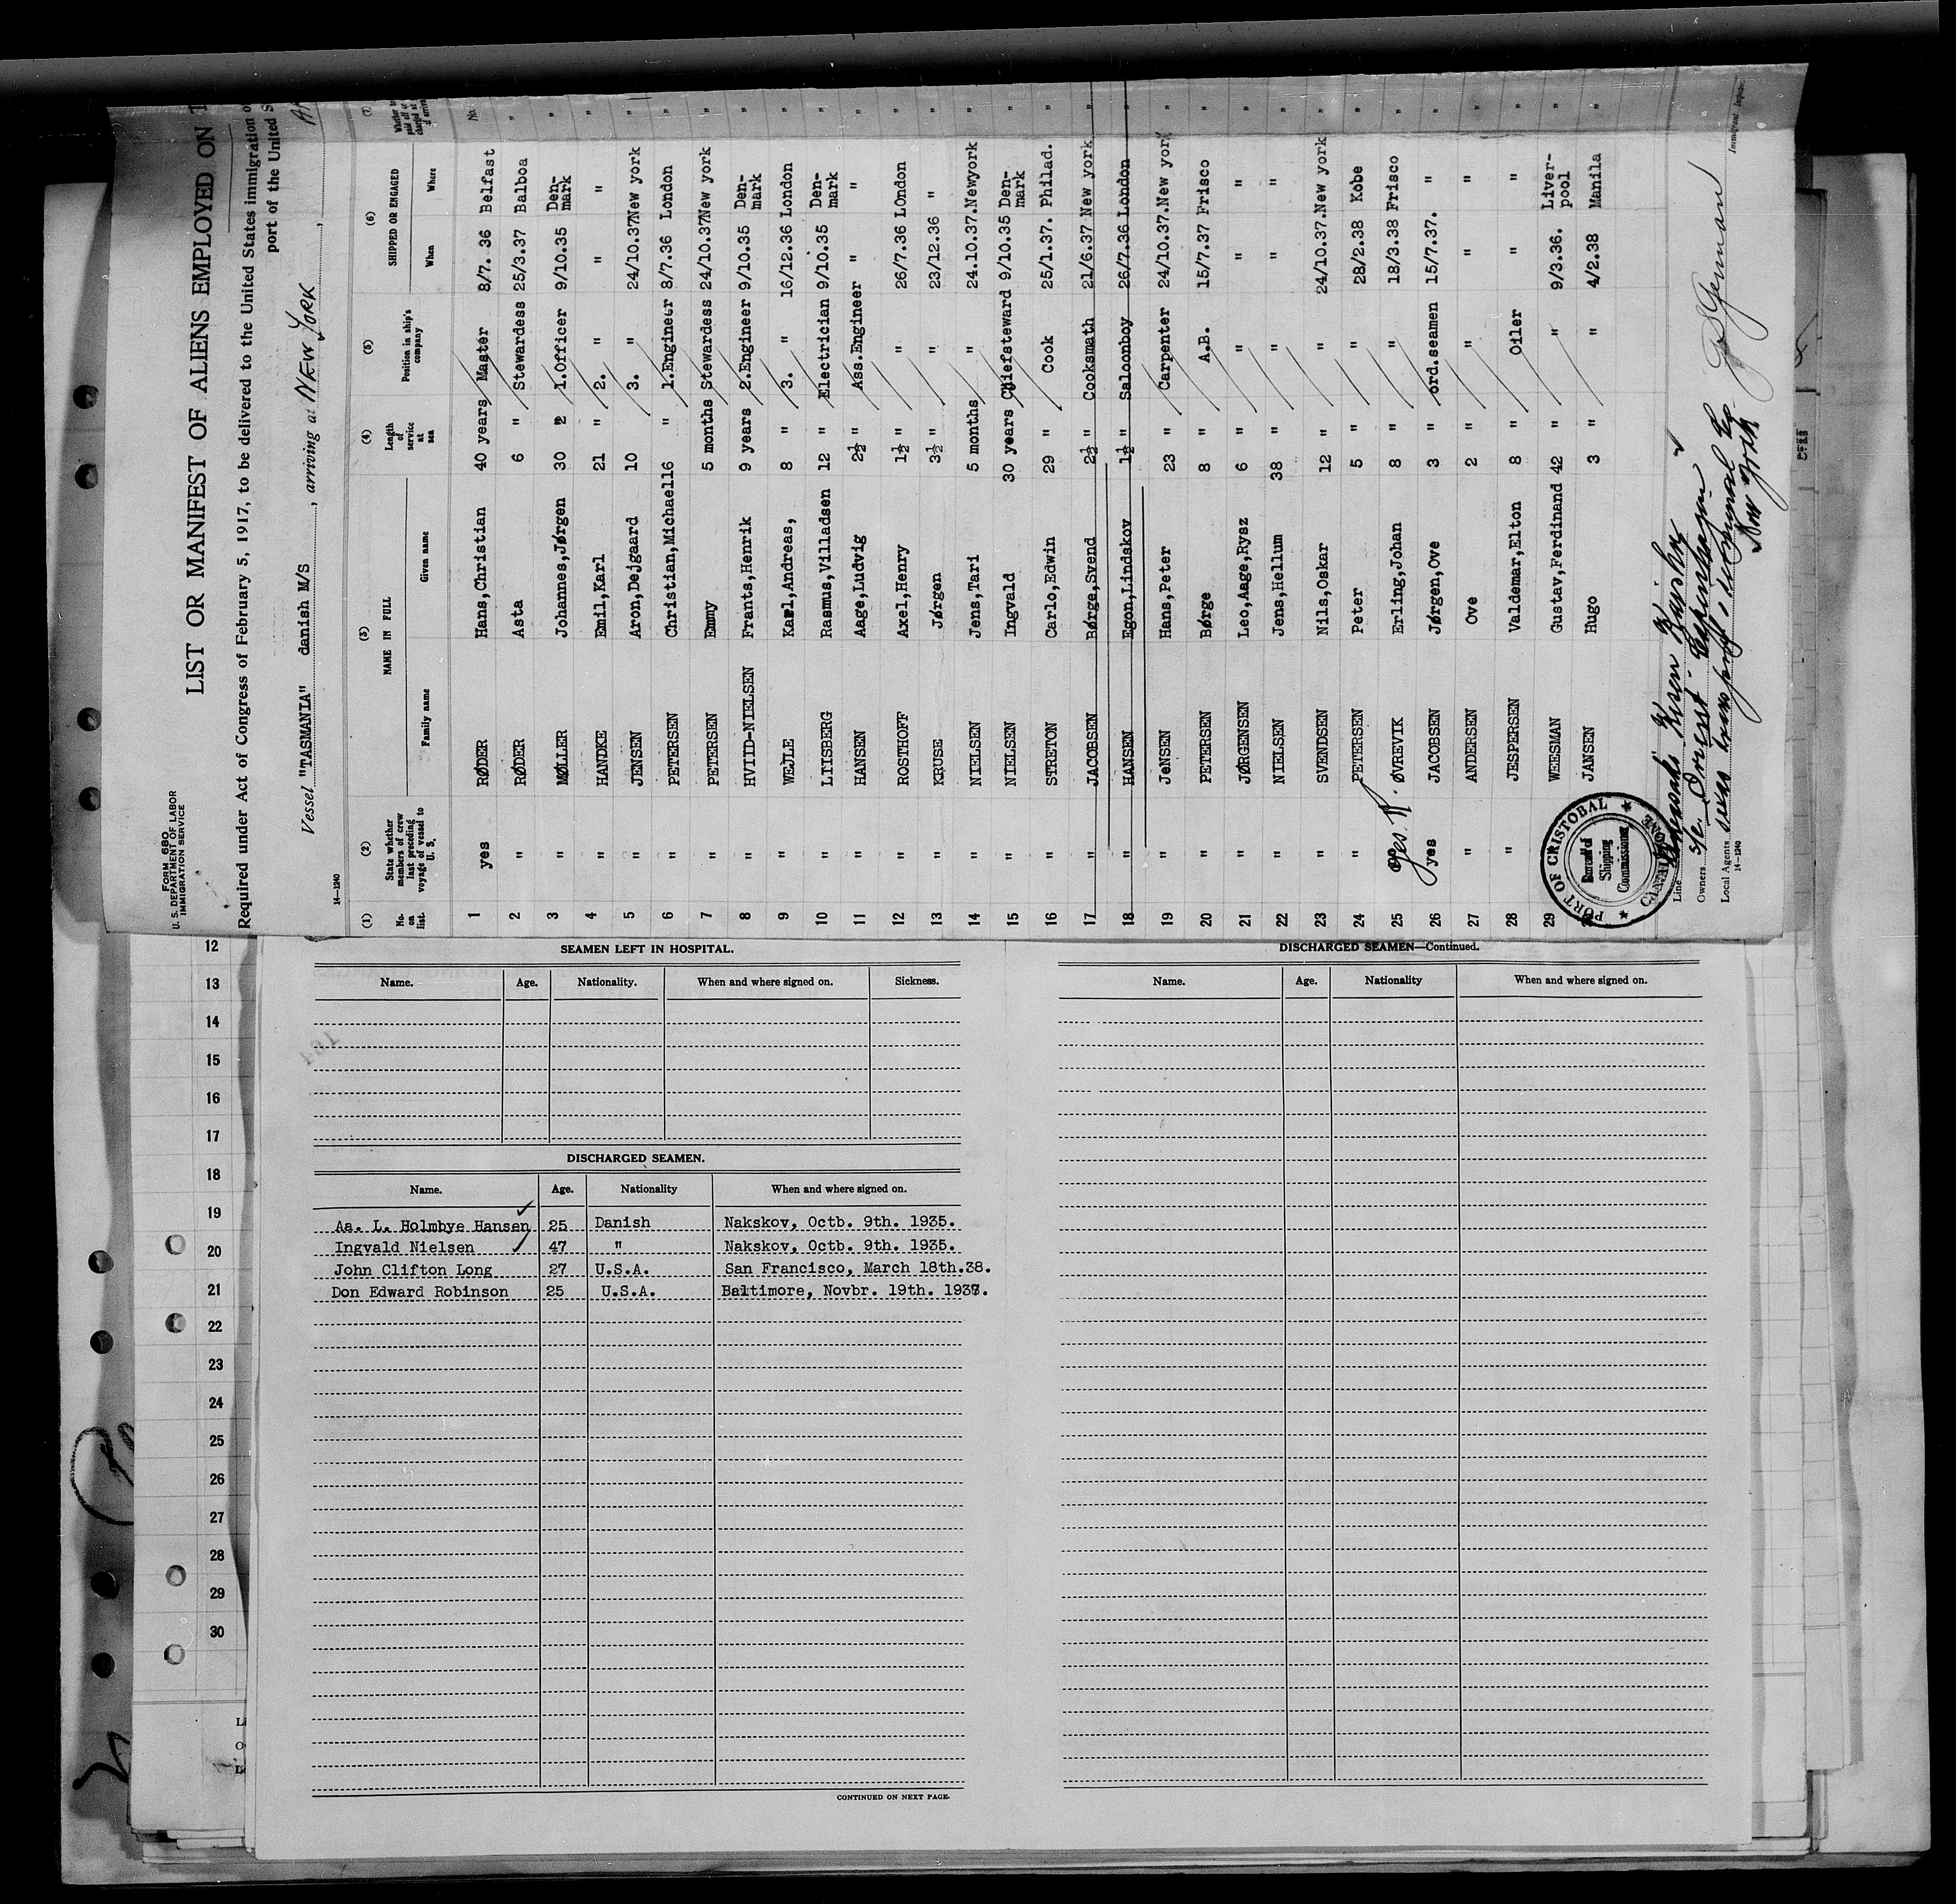 FORM 680
U. S. DEPARTMENT OF LABOR
IMMIGRATION SERVICE
LIST OR MANIFEST OF ALIENS EMPLOYED ON
Required under Act of Congress of February 5, 1917, to be delivered to the United States immigration
port of the United
Vessel "TASMANIA" danish M/S, arriving at NEW YORK,
14—1240
(1) (2) (3) (4) (5) (6) (7)
No. on list. State whether members of crew last preceding voyage of vessel to U. S. NAME IN FULL Length of service at sea Position in ship's company SHIPPED OR ENGAGED
Family name Given name When Where
1 yes RØDER Hans,Christian 40 years Master 8/7. 36 Belfast No.
2 " RØDER Asta 6 " Stewardess 25/3.37 Balboa "
3 " MØLLER Johannes,Jørgen 30 2 1.Officer 9/10.35 Den-mark "
4 " HANDKE Emil,Karl 21 " 2. " " " "
5 " JENSEN Aron,Dejgaard 10 3. " 24/10.37New york "
6 " PETERSEN Christian,Michael16 " 1.Engineer 8/7.36 London "
7 " PETERSEN Emmy 5 months Stewardess 24/10.37New york "
8 " HVIID-NIELSEN Frants,Henrik 9 years 2.Engineer 9/10.35 Den-mark "
9 " WEJLE Karl,Andreas, 8 " 3. " 16/12.36 London "
10 " LTISBERG Rasmus,Villadsen 12 " Electrician 9/10.35 Den-mark "
11 " HANSEN Aage,Ludvig 2½ " Ass.Engineer " " "
12 " ROSTHOFF Axel,Henry 1½ " " 26/7.36 London "
13 " KRUSE Jørgen 3½ " " 23/12.36 " "
14 " NIELSEN Jens,Tari 5 months " 24.10.37.Newyork "
15 " NIELSEN Ingvald 30 years Chiefsteward 9/10.35 Den-mark "
16 " STRETON Carlo,Edwin 29 " Cook 25/1.37. Philad. "
17 " JACOBSEN Børge,Svend 2½ " Cooksmath 21/6.37 New york "
18 " HANSEN Egon,Lindskov 1½ " Saloonboy 26/7.36 London "
19 " JeNSEN Hans,Peter 23 " Carpenter 24/10.37.New york "
20 " PETERSEN Børge 8 " A.B. 15/7.37 Frisco "
21 " JØRGENSEN Leo,Aage,Rysz 6 " " " " "
22 " NIELSEN Jens,Hellum 38 " " " "
23 " SVENDSEN Nils,Oskar 12 " " 24/10.37.New york "
24 " PETERSSEN Peter 5 " " 28/2.38 Kobe "
25 yes ØVREVIK Erling,Johan 8 " " 18/3.38 Frisco "
26 yes JACOBSEN Jørgen,Ove 3 " ord.seamen 15/7.37. " "
27 " ANDERSEN Ove 2 " " " " "
28 " JESPERSEN Valdemar,Elton 8 " Oiler " " "
29 WEESMAN Gustav,Ferdinand 42 " " 9/3.36. Liver-pool "
JANSEN Hugo 3 " " 4/2.38 Manila "
PORT OF CRISTOBAL
Bureau of Shipping Commissioner
CANAL ZONE
Line
Owners
Local Agents
New York
14—1240
12
13
14
15
16
17
18
19
20
21
22
23
24
25
26
27
28
29
30
SEAMEN LEFT IN HOSPITAL.
Name. Age. Nationality. When and where signed on. Sickness.
DISCHARGED SEAMEN.
Name. Age. Nationality When and where signed on.
Aa. L. Holmbye Hansen 25 Danish Nakskov, Octb. 9th. 1935.
Ingvald Nielsen 47 " Nakskov, Octb. 9th. 1935.
John Clifton Long 27 U.S.A. San Francisco, March 18th.38.
Don Edward Robinson 25 U.S.A. Baltimore, Novbr. 19th. 1937.
CONTINUED ON NEXT PAGE.
DISCHARGED SEAMEN—Continued.
Name. Age. Nationality When and where signed on.